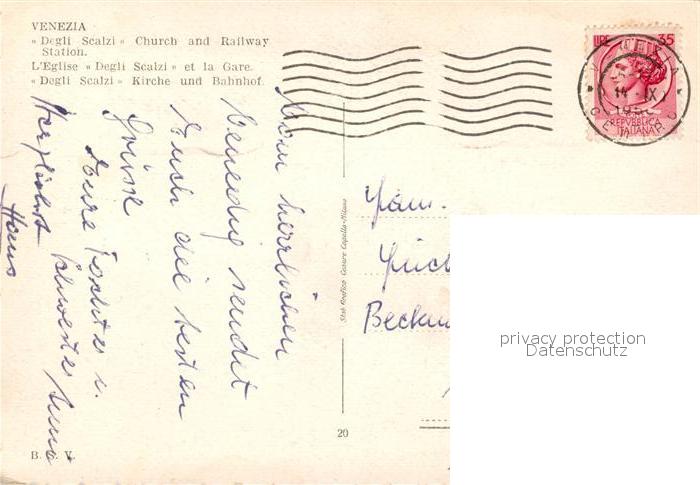 VENEZIA
« Degli Scalzi » Church and Railway
Station.
L'Eglise « Degli Scalzi » et la Gare.
« Degli Scalzi » Kirche und Bahnhof.
LIRE 35
VENEZIA
14 · IX
REPVBBLICA
ITALIANA
Vom herrlichen
Venedig sendet
Euch die besten
Grüsse
Eure Tochter u.
Schwester
Herzlichst
Hans
Fam.
Beckm
Stab Grafico Cesare Capello-Milano
privacy protection
Datenschutz
20
B. C. V.